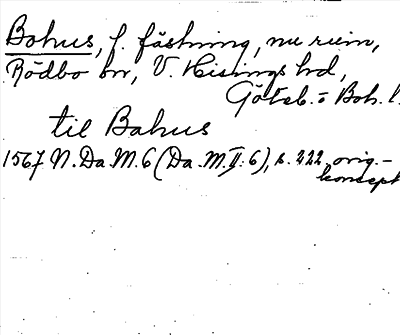 Bohus, f. fästning, nu ruin,
Rödbo sn, V. Hisings hd,
Göteb. o Boh. l.
til Bahus
1567 N.Da.M. 6 (Da.M. II: 6), s. 222, orig.-
koncept